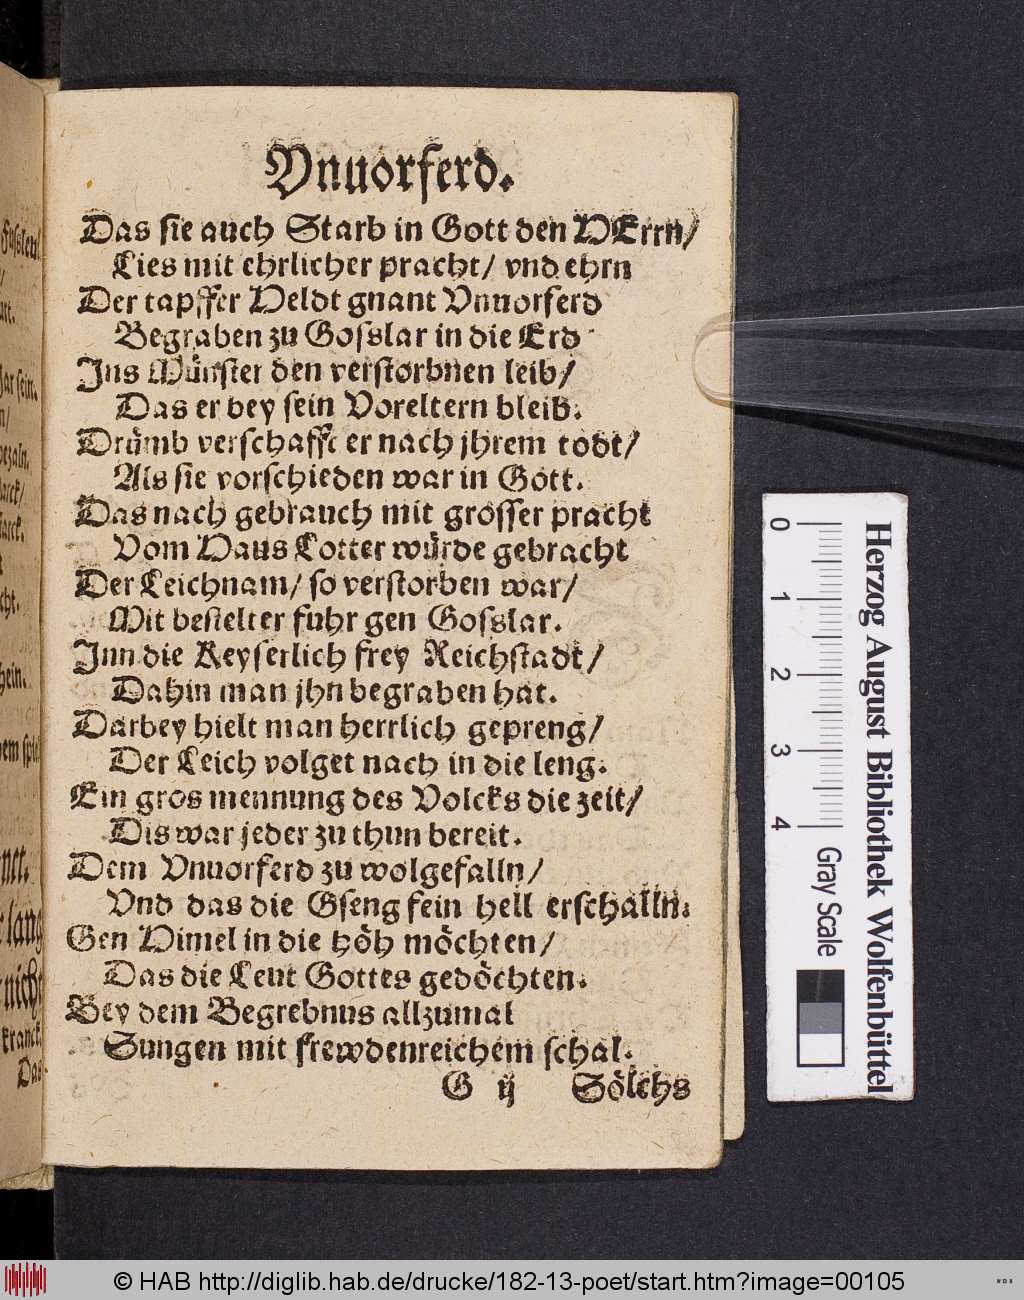 Vnuorferd.
Das sie auch Starb in Gott den HErrn/
Lies mit ehrlicher pracht/ vnd ehrn
Der tapffer Heldt gnant Vnuorferd
Begraben zu Gosslar in die Erd
Ins Münster den verstorbnen leib/
Das er bey sein Voreltern bleib.
Drümb verschafft er nach jhrem todt/
Als sie vorschieden war in Gott.
Das nach gebrauch mit grosser pracht
Vom Haus Lotter würde gebracht
Der Leichnam/ so verstorben war/
Mit bestelter fuhr gen Gosslar.
Inn die Keyserlich frey Reichstadt/
Dahin man jhn begraben hat.
Darbey hielt man herrlich gepreng/
Der Leich volget nach in die leng.
Ein gros mennung des Volcks die zeit/
Dis war jeder zu thun bereit.
Dem Vnuorferd zu wolgefalln/
Vnd das die Gseng fein hell erschalln.
Gen Himel in die höh möchten/
Das die Leut Gottes gedöchten.
Bey dem Begrebnus allzumal
Sungen mit frewdenreichem schal.
G ij Sölchs
0 1 2 3 4
Gray Scale
Herzog August Bibliothek Wolfenbüttel
© HAB http://diglib.hab.de/drucke/182-13-poet/start.htm?image=00105